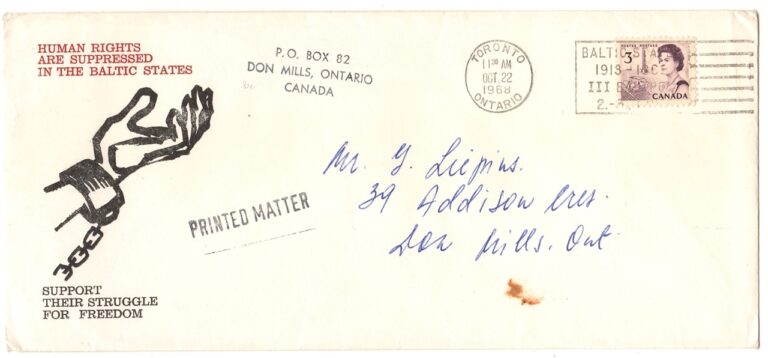 HUMAN RIGHTS
ARE SUPPRESSED
IN THE BALTIC STATES
P.O. BOX 82
DON MILLS, ONTARIO
CANADA
TORONTO
11 30 AM
OCT. 22
1968
ONTARIO
BALTIC
1918-19
III
2.-
POSTES POSTAGE
3
CANADA
Mr. G. Liepins.
39 Addison Cres.
Don Mills. Ont
PRINTED MATTER
SUPPORT
THEIR STRUGGLE
FOR FREEDOM